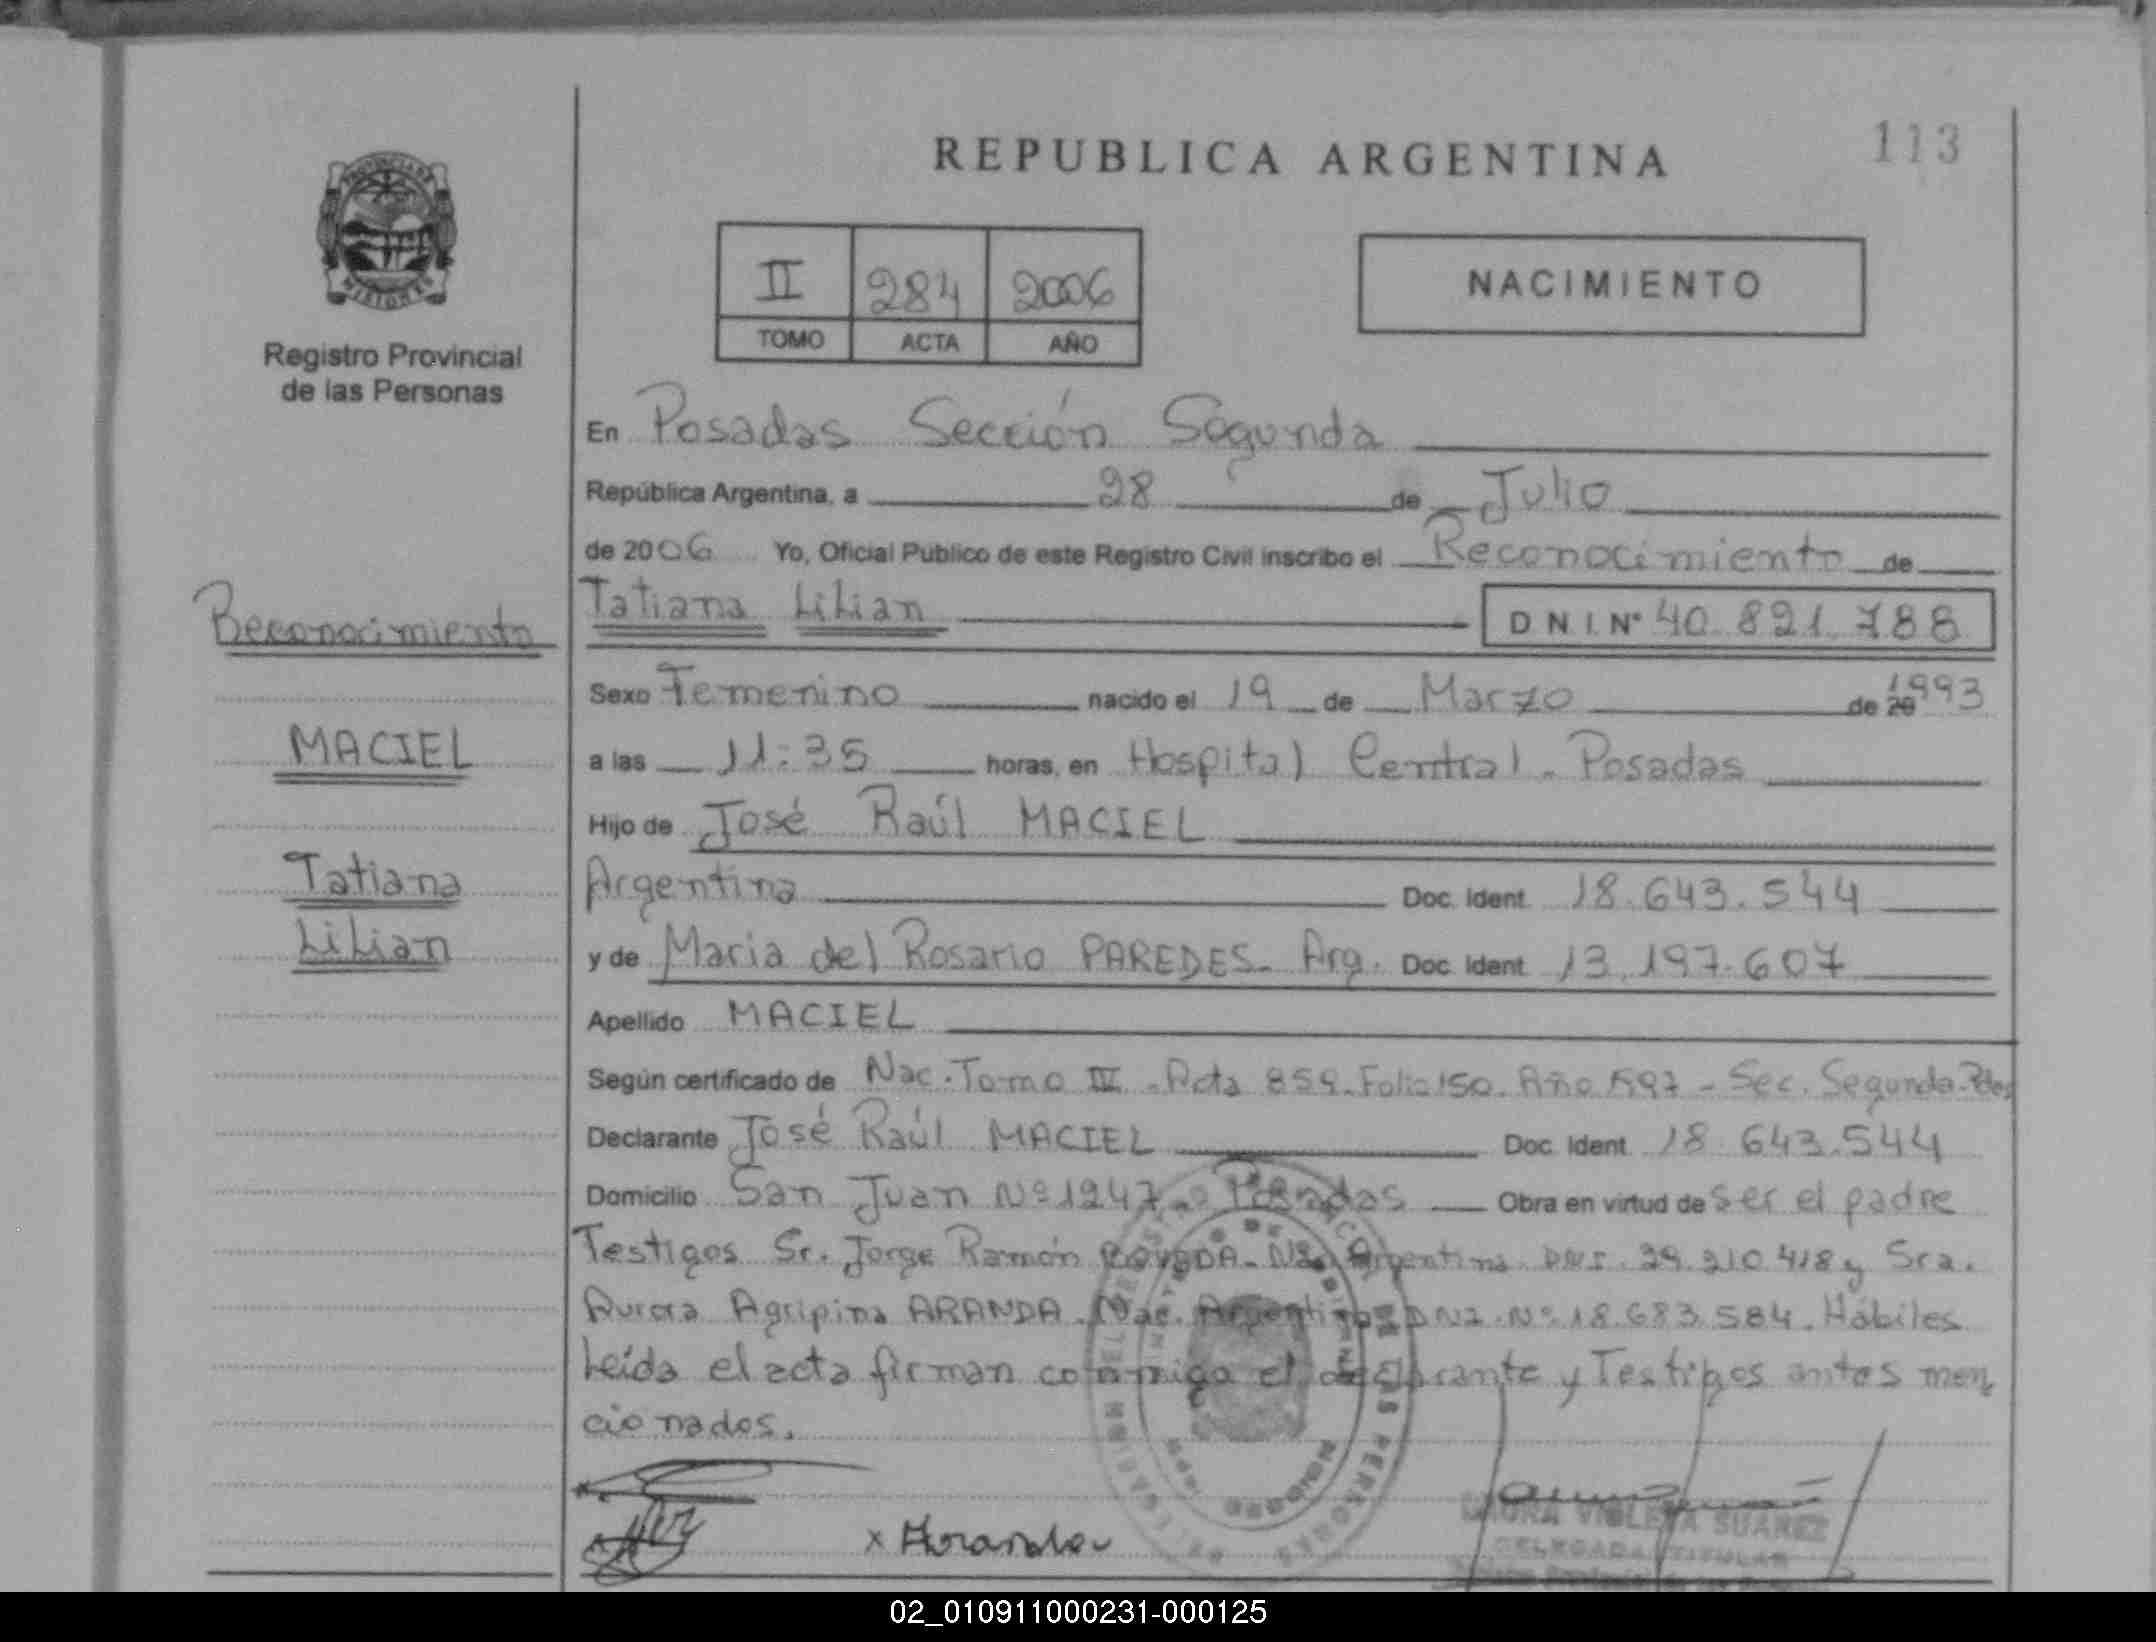 REPUBLICA ARGENTINA
113
PROVINCIA DE MISIONES
Registro Provincial
de las Personas
II 284 2006
TOMO ACTA AÑO
NACIMIENTO
En Posadas Sección Segunda
República Argentina, a 28 de Julio
de 2006 Yo, Oficial Publico de este Registro Civil inscribo el Reconocimiento de
Tatiana Lilian D N I. Nº 40.821.788
Sexo Femenino nacido el 19 de Marzo de 20 1993
a las 11:35 horas, en Hospital Central - Posadas
Hijo de José Raúl MACIEL
Argentina Doc. Ident. 18.643.544
y de Maria del Rosario PAREDES - Arg. Doc. Ident. 13.197.607
Apellido MACIEL
Según certificado de Nac. Tomo - Acta 859 - Folio 150 - Año - Sec. Segunda - Pdas
Declarante José Raúl MACIEL Doc. Ident. 18.643.544
Domicilio San Juan Nº 1247 - Posadas Obra en virtud de ser el padre
Testigos Sr. Jorge Ramón Argentina DNI. 29.210.418 y Sra.
Aurora Agripina ARANDA - Nac. Argentina - DNI. Nº 18.683.584. Hábiles
Leída el acta firman conmigo el declarante y Testigos antes men
cionados.
x Aranda
LAURA VIOLETA SUAREZ
DELEGADA TITULAR
Reconocimiento
MACIEL
Tatiana
Lilian
02_010911000231-000125